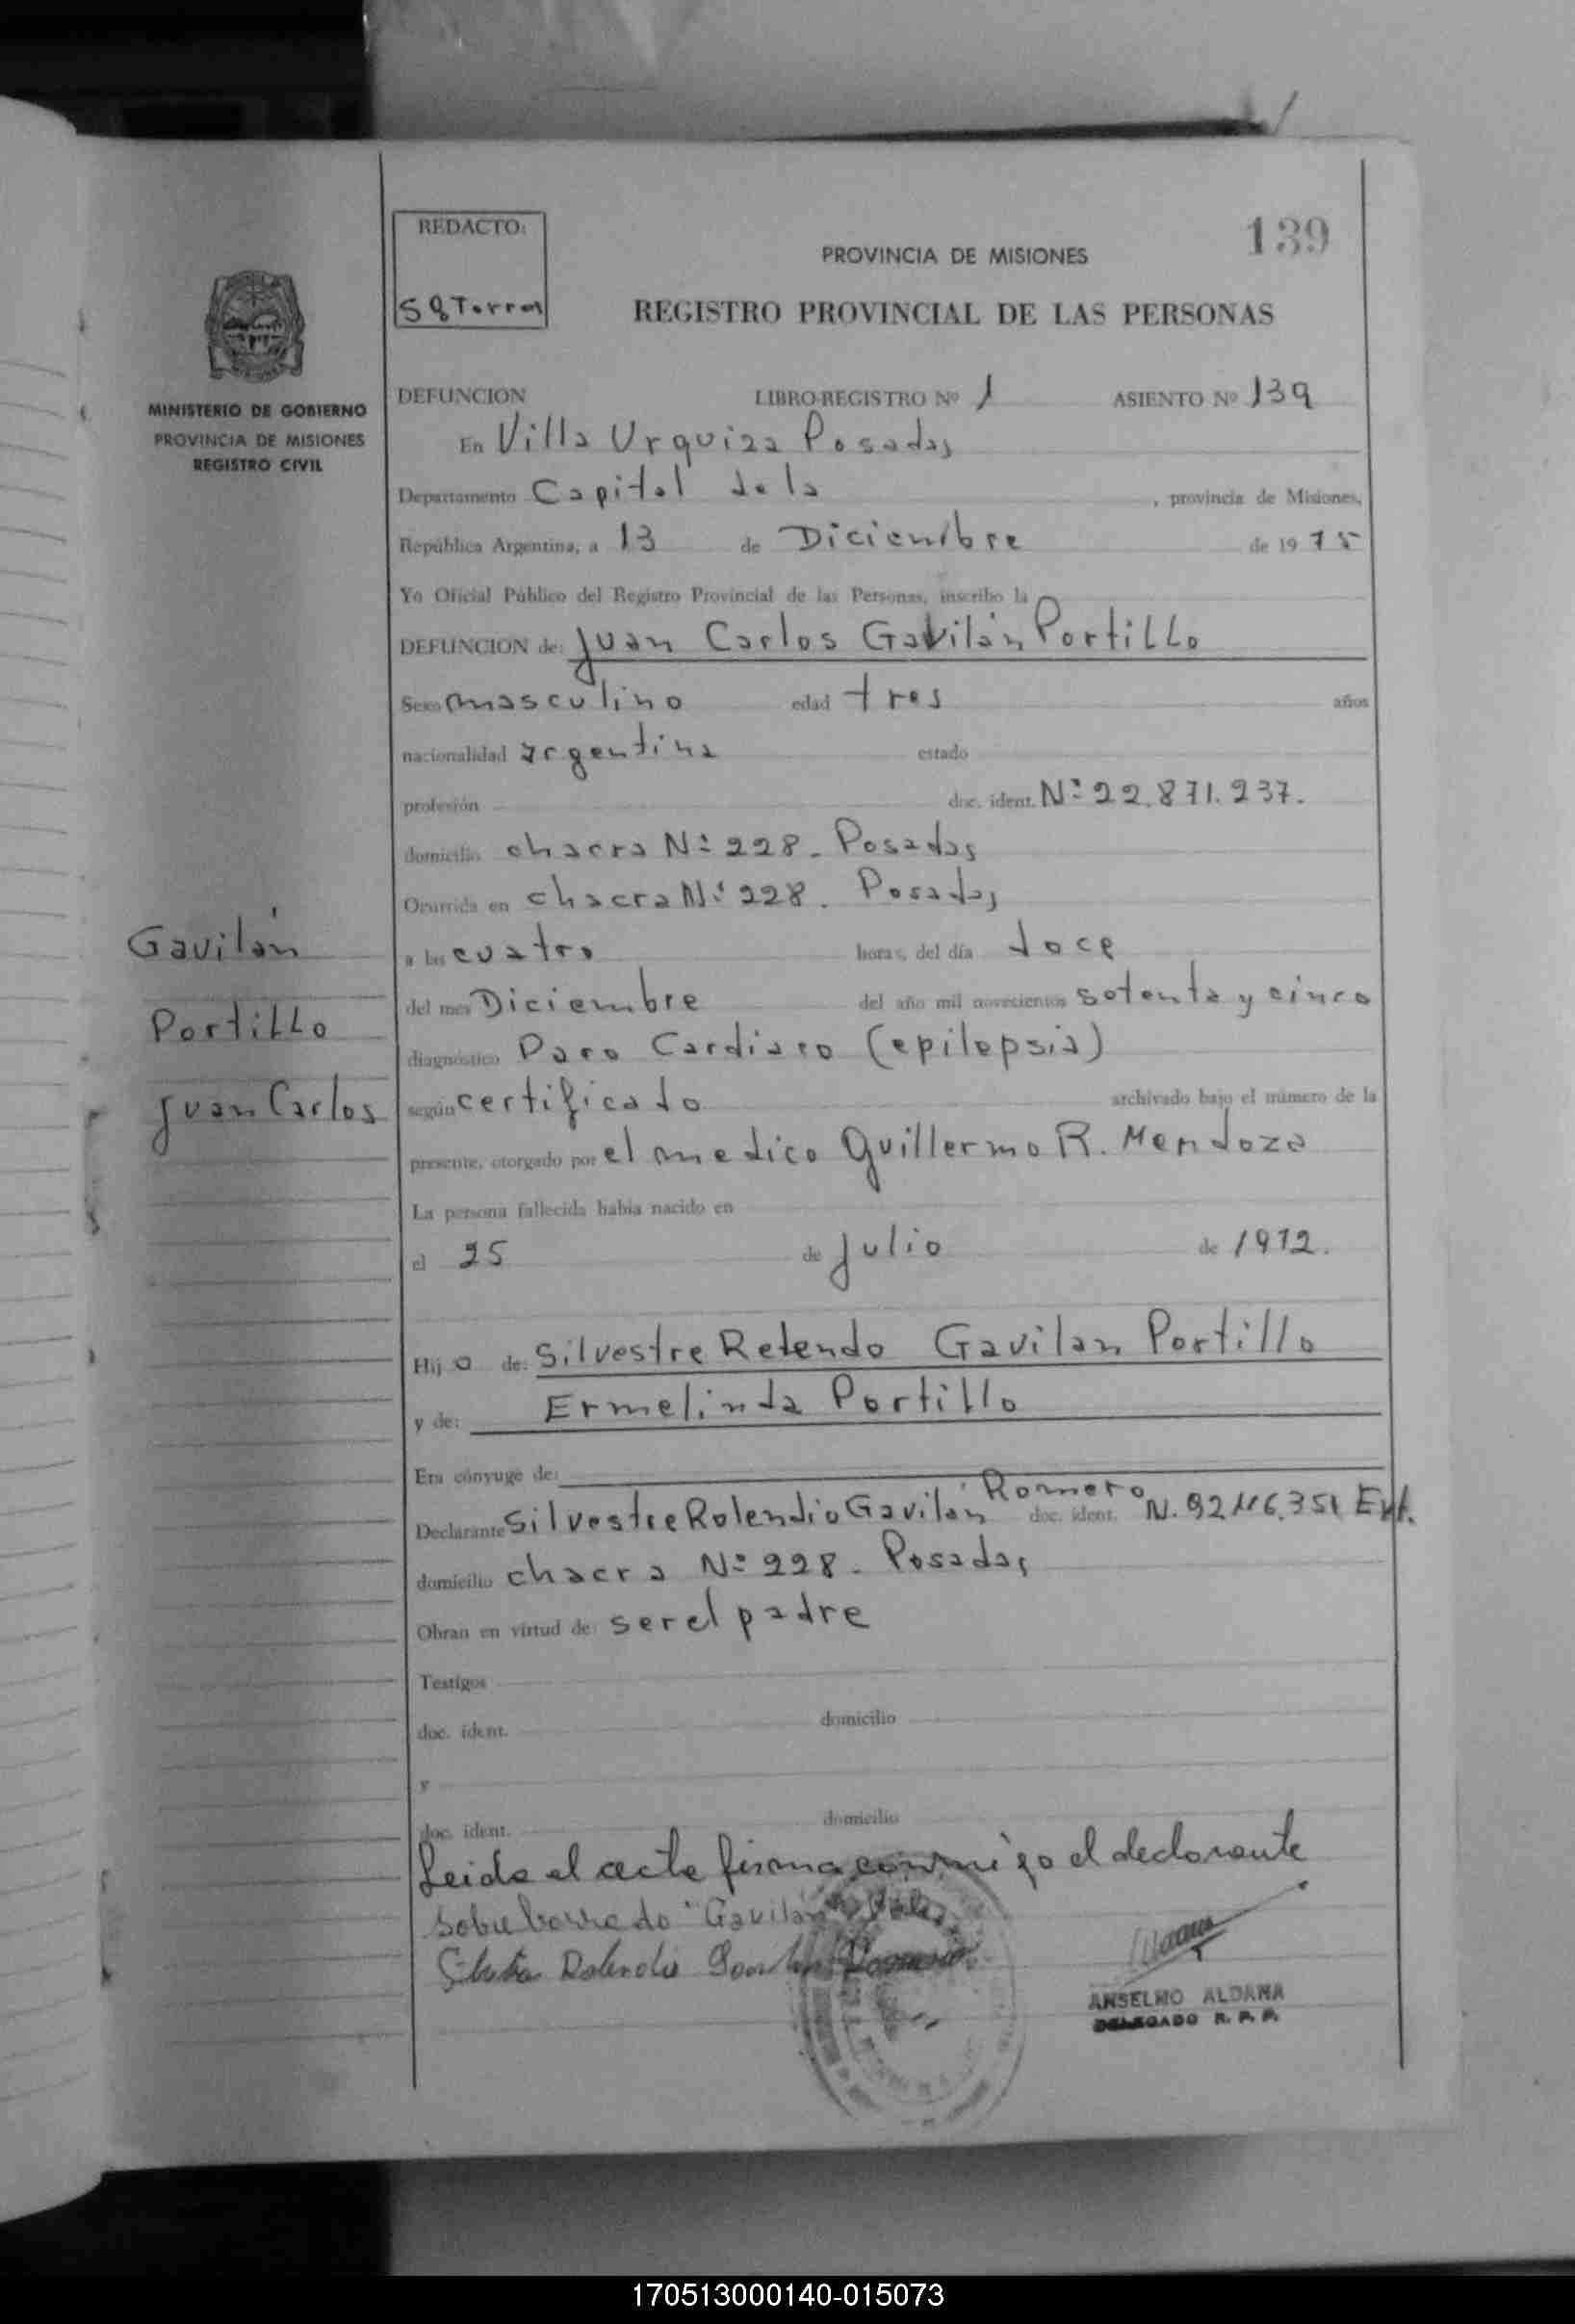 139
REDACTO:
PROVINCIA DE MISIONES
REGISTRO PROVINCIAL DE LAS PERSONAS
MINISTERIO DE GOBIERNO
PROVINCIA DE MISIONES
REGISTRO CIVIL
DEFUNCION LIBRO-REGISTRO Nº 1 ASIENTO Nº 139
En Villa Urquiza Posadas
Departamento Capital de la , provincia de Misiones,
República Argentina, a 13 de Diciembre de 1975
Yo Oficial Público del Registro Provincial de las Personas, inscribo la
DEFUNCION de: Juan Carlos Gavilán Portillo
Sexo masculino edad tres años
nacionalidad argentina estado
profesión doc. ident. Nº 22.871.237.
domicilio chacra Nº 228. Posadas
Ocurrida en chacra Nº 228. Posadas
a las cuatro horas, del día doce
del mes Diciembre del año mil novecientos setenta y cinco
diagnóstico Paro Cardiaco (epilepsia)
según certificado archivado bajo el número de la
presente, otorgado por el medico Guillermo R. Mendoza
La persona fallecida había nacido en
el 25 de Julio de 1972.
Hijo de: Silvestre Retendo Gavilan Portillo
y de: Ermelinda Portillo
Era cónyuge de:
Declarante Silvestre Rolendio Gavilán Romero doc. ident. N. 92116.351 Ext.
domicilio chacra Nº 228. Posadas
Obran en virtud de: ser el padre
Testigos
doc. ident. domicilio
y
doc. ident. domicilio
Leida el acta firma conmigo el declarante
sobre borrado "Gavilán"
ANSELMO ALDANA
DELEGADO R. P. P.
Gavilán
Portillo
Juan Carlos
170513000140-015073